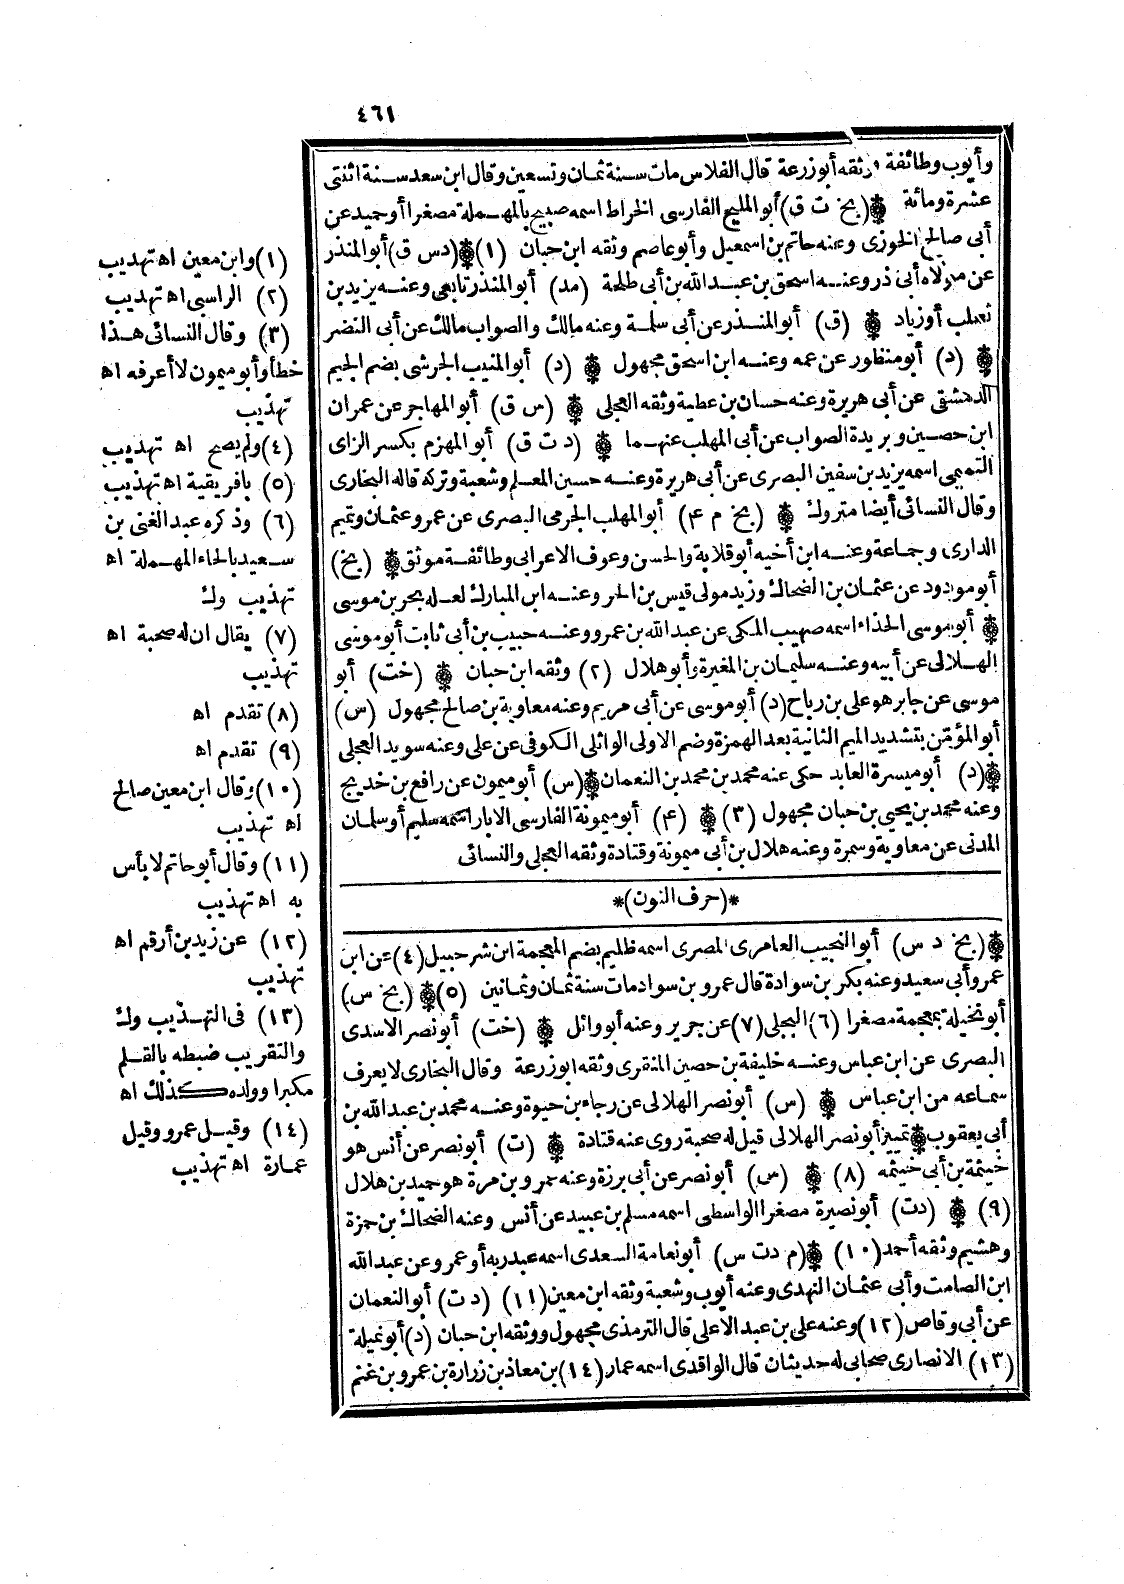 ٤٦١
وأيوب وطائفة وثقه أبو زرعة قال الفلاس مات سنة ثمان وتسعين وقال ابن سعد سنة اثنتى
عشرة ومائة (بخ ت ق) أبو المليح الفارسى الخراط اسمه صبيح بالمهملة مصغرا أو حميد عن
أبى صالح الخوزى وعنه حاتم بن اسمعيل وأبو عاصم وثقه ابن حبان (١) (دس ق) أبو المنذر
عن مولاه أبى ذر وعنه اسحق بن عبد الله بن أبى طلحة (مد) أبو المنذر تابعى وعنه يزيد بن
ثعلب أو زياد (ق) أبو المنذر عن أبى سلمة وعنه مالك والصواب مالك عن أبى النضر
(د) أبو منظور عن عمه وعنه ابن اسحق مجهول (د) أبو المنيب الجرشى بضم الجيم
الدمشقى عن أبى هريرة وعنه حسان بن عطية وثقه العجلى (س ق) أبو المهاجر عن عمران
ابن حصين وبريدة الصواب عن أبى المهلب عنهما (د ت ق) أبو المهزم بكسر الزاى
التميمى اسمه يزيد بن سفين البصرى عن أبى هريرة وعنه حسين المعلم وشعبة وتركه قاله البخارى
وقال النسائى أيضا متروك (بخ م ٤) أبو المهلب الجرمى البصرى عن عمر وعثمان وتميم
الدارى وجماعة وعنه ابن أخيه أبو قلابة والحسن وعوف الاعرابى وطائفة موثق (بخ)
أبو مودود عن عثمان بن الضحاك وزيد مولى قيس بن الحر وعنه ابن المبارك لعله بحر بن موسى
أبو موسى الحذاء اسمه صهيب المكى عن عبد الله بن عمرو وعنه حبيب بن أبى ثابت أبو موسى
الهلالى عن أبيه وعنه سليمان بن المغيرة وأبو هلال (٢) وثقه ابن حبان (خت) أبو
موسى عن جابر هو على بن رباح (د) أبو موسى عن أبى مريم وعنه معاوية بن صالح مجهول (س)
أبو المؤمن بتشديد الميم الثانية بعد الهمزة وضم الاولى الوائلى الكوفى عن على وعنه سويد العجلى
(د) أبو ميسرة العابد حكى عنه محمد بن محمد بن النعمان (س) أبو ميمون عن رافع بن خديج
وعنه محمد بن يحيى بن حبان مجهول (٣) (٤) أبو ميمونة الفارسى الابار اسمه سليم أو سلمان
المدنى عن معاوية وسمرة وعنه هلال بن أبى ميمونة وقتادة وثقه العجلى والنسائى
*(حرف النون)*
(بخ د س) أبو النجيب العامرى المصرى اسمه ظليم بضم المعجمة ابن شرحبيل (٤) عن ابن
عمر وأبى سعيد وعنه بكر بن سوادة قال عمرو بن سواد مات سنة ثمان وثمانين (٥) (بخ س)
أبو نخيلة بمعجمة مصغرا (٦) البجلى (٧) عن جرير وعنه أبو وائل (خت) أبو نصر الاسدى
البصرى عن ابن عباس وعنه خليفة بن حصين المنقرى وثقه ابو زرعة وقال البخارى لا يعرف
سماعه من ابن عباس (س) أبو نصر الهلالى عن رجاء بن حيوة وعنه محمد بن عبد الله بن
أبى يعقوب تمييز أبو نصر الهلالى قيل له صحبة روى عنه قتادة (ت) أبو نصر عن أنس هو
خيثمة بن أبى خيثمة (٨) (س) أبو نصر عن أبى برزة وعنه عمرو بن مرة هو حميد بن هلال
(٩) (دت) أبو نصيرة مصغرا الواسطى اسمه مسلم بن عبيد عن أنس وعنه الضحاك بن حمزة
وهشيم وثقه أحمد (١٠) (م دت س) أبو نعامة السعدى اسمه عبد ربه أو عمرو عن عبد الله
ابن الصامت وأبى عثمان النهدى وعنه أيوب وشعبة وثقه ابن معين (١١) (د ت) أبو النعمان
عن أبى وقاص (١٢) وعنه على بن عبد الاعلى قال الترمذى مجهول ووثقه ابن حبان (د) أبو نميلة
(١٣) الانصارى صحابى له حديثان قال الواقدى اسمه عمار (١٤) بن معاذ بن زرارة بن عمرو بن غنم
(١) وابن معين اه تهذيب
(٢) الراسبى اه تهذيب
(٣) وقال النسائى هذا
خطأ وأبو ميمون لا أعرفه اه
تهذيب
(٤) ولم يصح اه تهذيب
(٥) بافريقية اه تهذيب
(٦) وذكره عبد الغنى بن
سعيد بالحاء المهملة اه
تهذيب وك
(٧) يقال ان له صحبة اه
تهذيب
(٨) تقدم اه
(٩) تقدم اه
(١٠) وقال ابن معين صالح
اه تهذيب
(١١) وقال أبو حاتم لا بأس
به اه تهذيب
(١٢) عن زيد بن أرقم اه
تهذيب
(١٣) فى التهذيب وك
والتقريب ضبطه بالقلم
مكبرا وولده كذلك اه
(١٤) وقيل عمرو وقيل
عمارة اه تهذيب